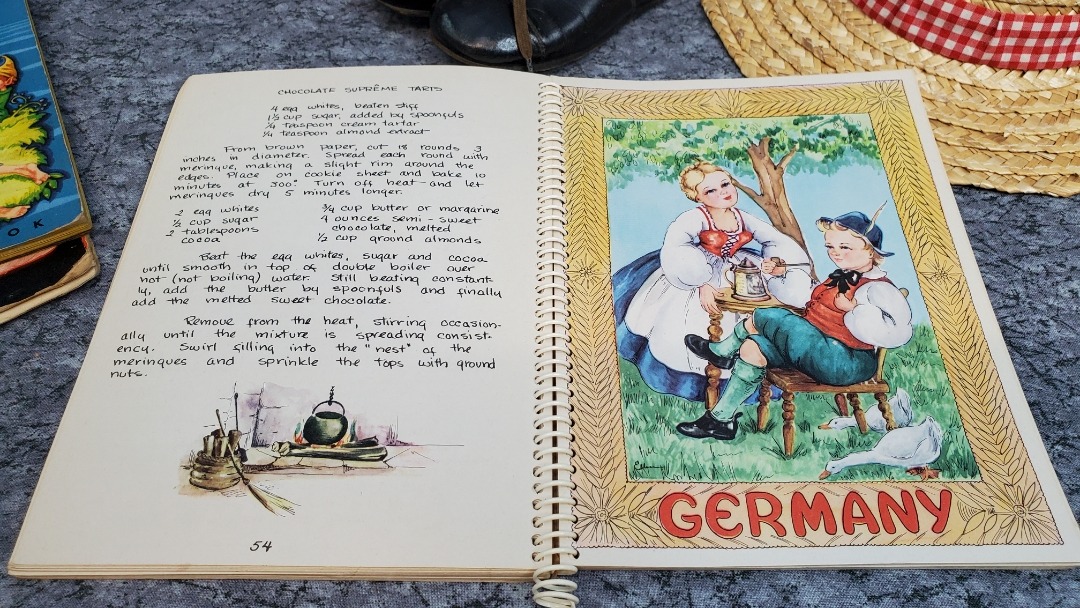 CHOCOLATE SUPRÊME TARTS
4 egg whites, beaten stiff
1⅓ cup sugar, added by spoonfuls
¼ teaspoon cream tartar
¼ teaspoon almond extract
From brown paper, cut 18 rounds 3
inches in diameter. Spread each round with
meringue, making a slight rim around the
edges. Place on cookie sheet and bake 10
minutes at 300°. Turn off heat and let
meringues dry 5 minutes longer.
2 egg whites
½ cup sugar
2 tablespoons
cocoa
¾ cup butter or margarine
4 ounces semi-sweet
chocolate, melted
½ cup ground almonds
Beat the egg whites, sugar and cocoa
until smooth in top of double boiler over
hot (not boiling) water. Still beating constant-
ly, add the butter by spoonfuls and finally
add the melted sweet chocolate.
Remove from the heat, stirring occasion-
ally until the mixture is spreading consist-
ency. Swirl filling into the "nest" of the
meringues and sprinkle the tops with ground
nuts.
54
GERMANY
OK